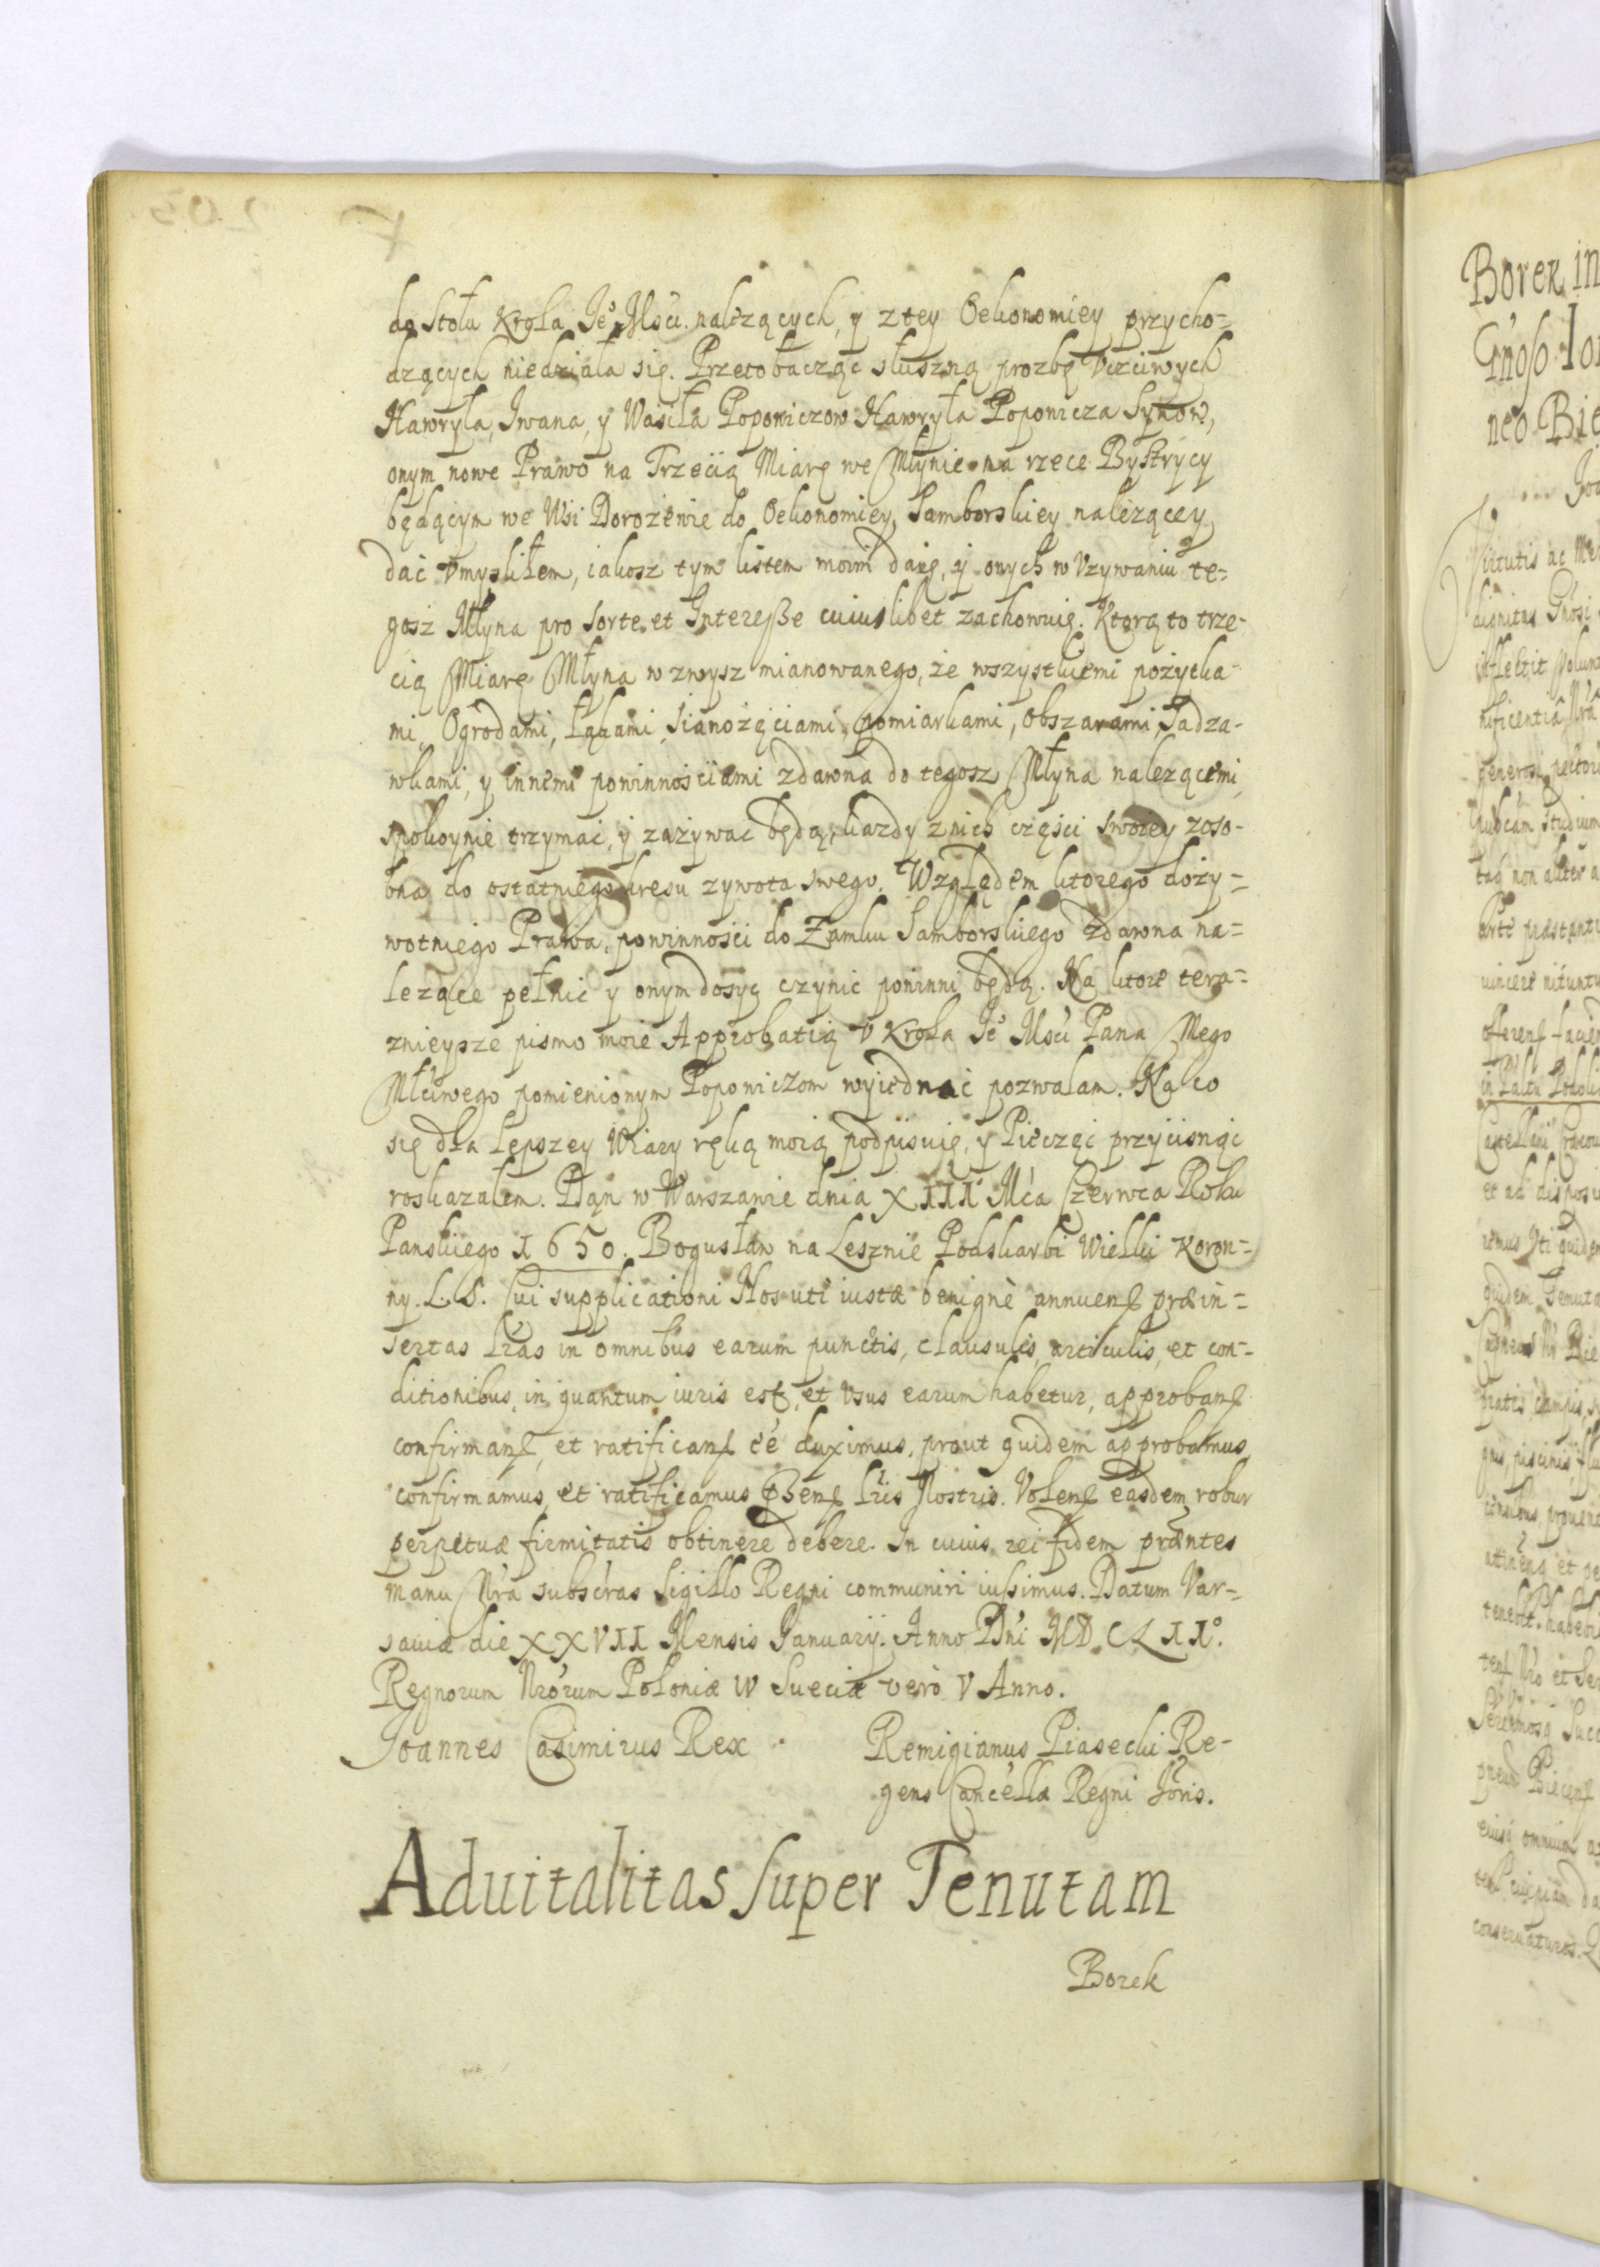 do Stołu Krola Je° Mści należących, y z tey Oekonomiey przycho=
dzących niedziała się. Przeto bacząc słuszną prozbę Vczciwych
Hawryła, Iwana, y Wasiła Popowiczow Hawryła Popowicza Synow,
onym nowe Prawo na Trzecią Miarę we Młynie na rzece Bystrycy
będącym we Wsi Dorożewie do Oekonomiey Samborskiey należącey
dać vmysliłem, iakosz tym listem moim daię, y onych w Vzywaniu te=
gosz Młyna pro sorte et Interesse cuiuslibet zachowuię. Ktorą to trze-
cią Miarę Młyna wzwysz mianowanego, że wszystkiemi pożytka-
mi, Ogrodami, Łąkami, Sianożęciami, pomiarkami, Obszarami, Sadza-
wkami, y innemi powinnosciami zdawna do tegosz Młyna należącemi,
spokoynie trzymać, y zażywac będą, kazdy znich części swoiey zoso-
bna do ostatniego kresu zywota swego. Względem ktorego doży=
wotniego Prawa, powinności do Zamku Samborskiego zdawna na=
leżące pełnić y onym dosyć czynić powinni będą. Na ktore tera=
znieysze pismo moie Approbatią v Krola Je° Mści Pana Mego
Młciwego pomienionym Popowiczom wyiednać pozwalam. Na co
się dla lepszey Wiary ręką moią podpisuię, y Pieczęć przycisnąć
roskazałem. Dan w Warszawie dnia XIII Mća Czerwca Roku
Panskiego 1650. Bogusław na Lesznie Podskarbi Wielki Koron=
ny. L. S. Cui supplicationi Nos uti iustæ benignè annuen præin=
sertas Lrás in omnibus earum punctis, clausulis, articulis, et con=
ditionibus, in quantum iuris est, et Vsus earum habetur, approban
confirman, et ratifican eé duximus, prout quidem approbamus
confirmamus, et ratificamus hisce Lris Nostris. Volen easdem robur
perpetuæ firmitatis obtinere debere. In cuius rei fidem præntes
manu Nrá subscras Sigillo Regni communiri iussimus. Datum Var=
saviæ die XXVII Mensis Ianuarÿ. Anno Dni MDCLII°.
Regnorum Nrorum Poloniæ IV Sueciæ verò V Anno.
Joannes Casimirus Rex. Remigianus Piasecki Re-
gens Cancellæ Regni
Aduitalitas super Tenutam
Borek